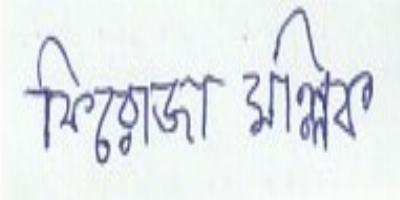 ফিরোজা মল্লিক